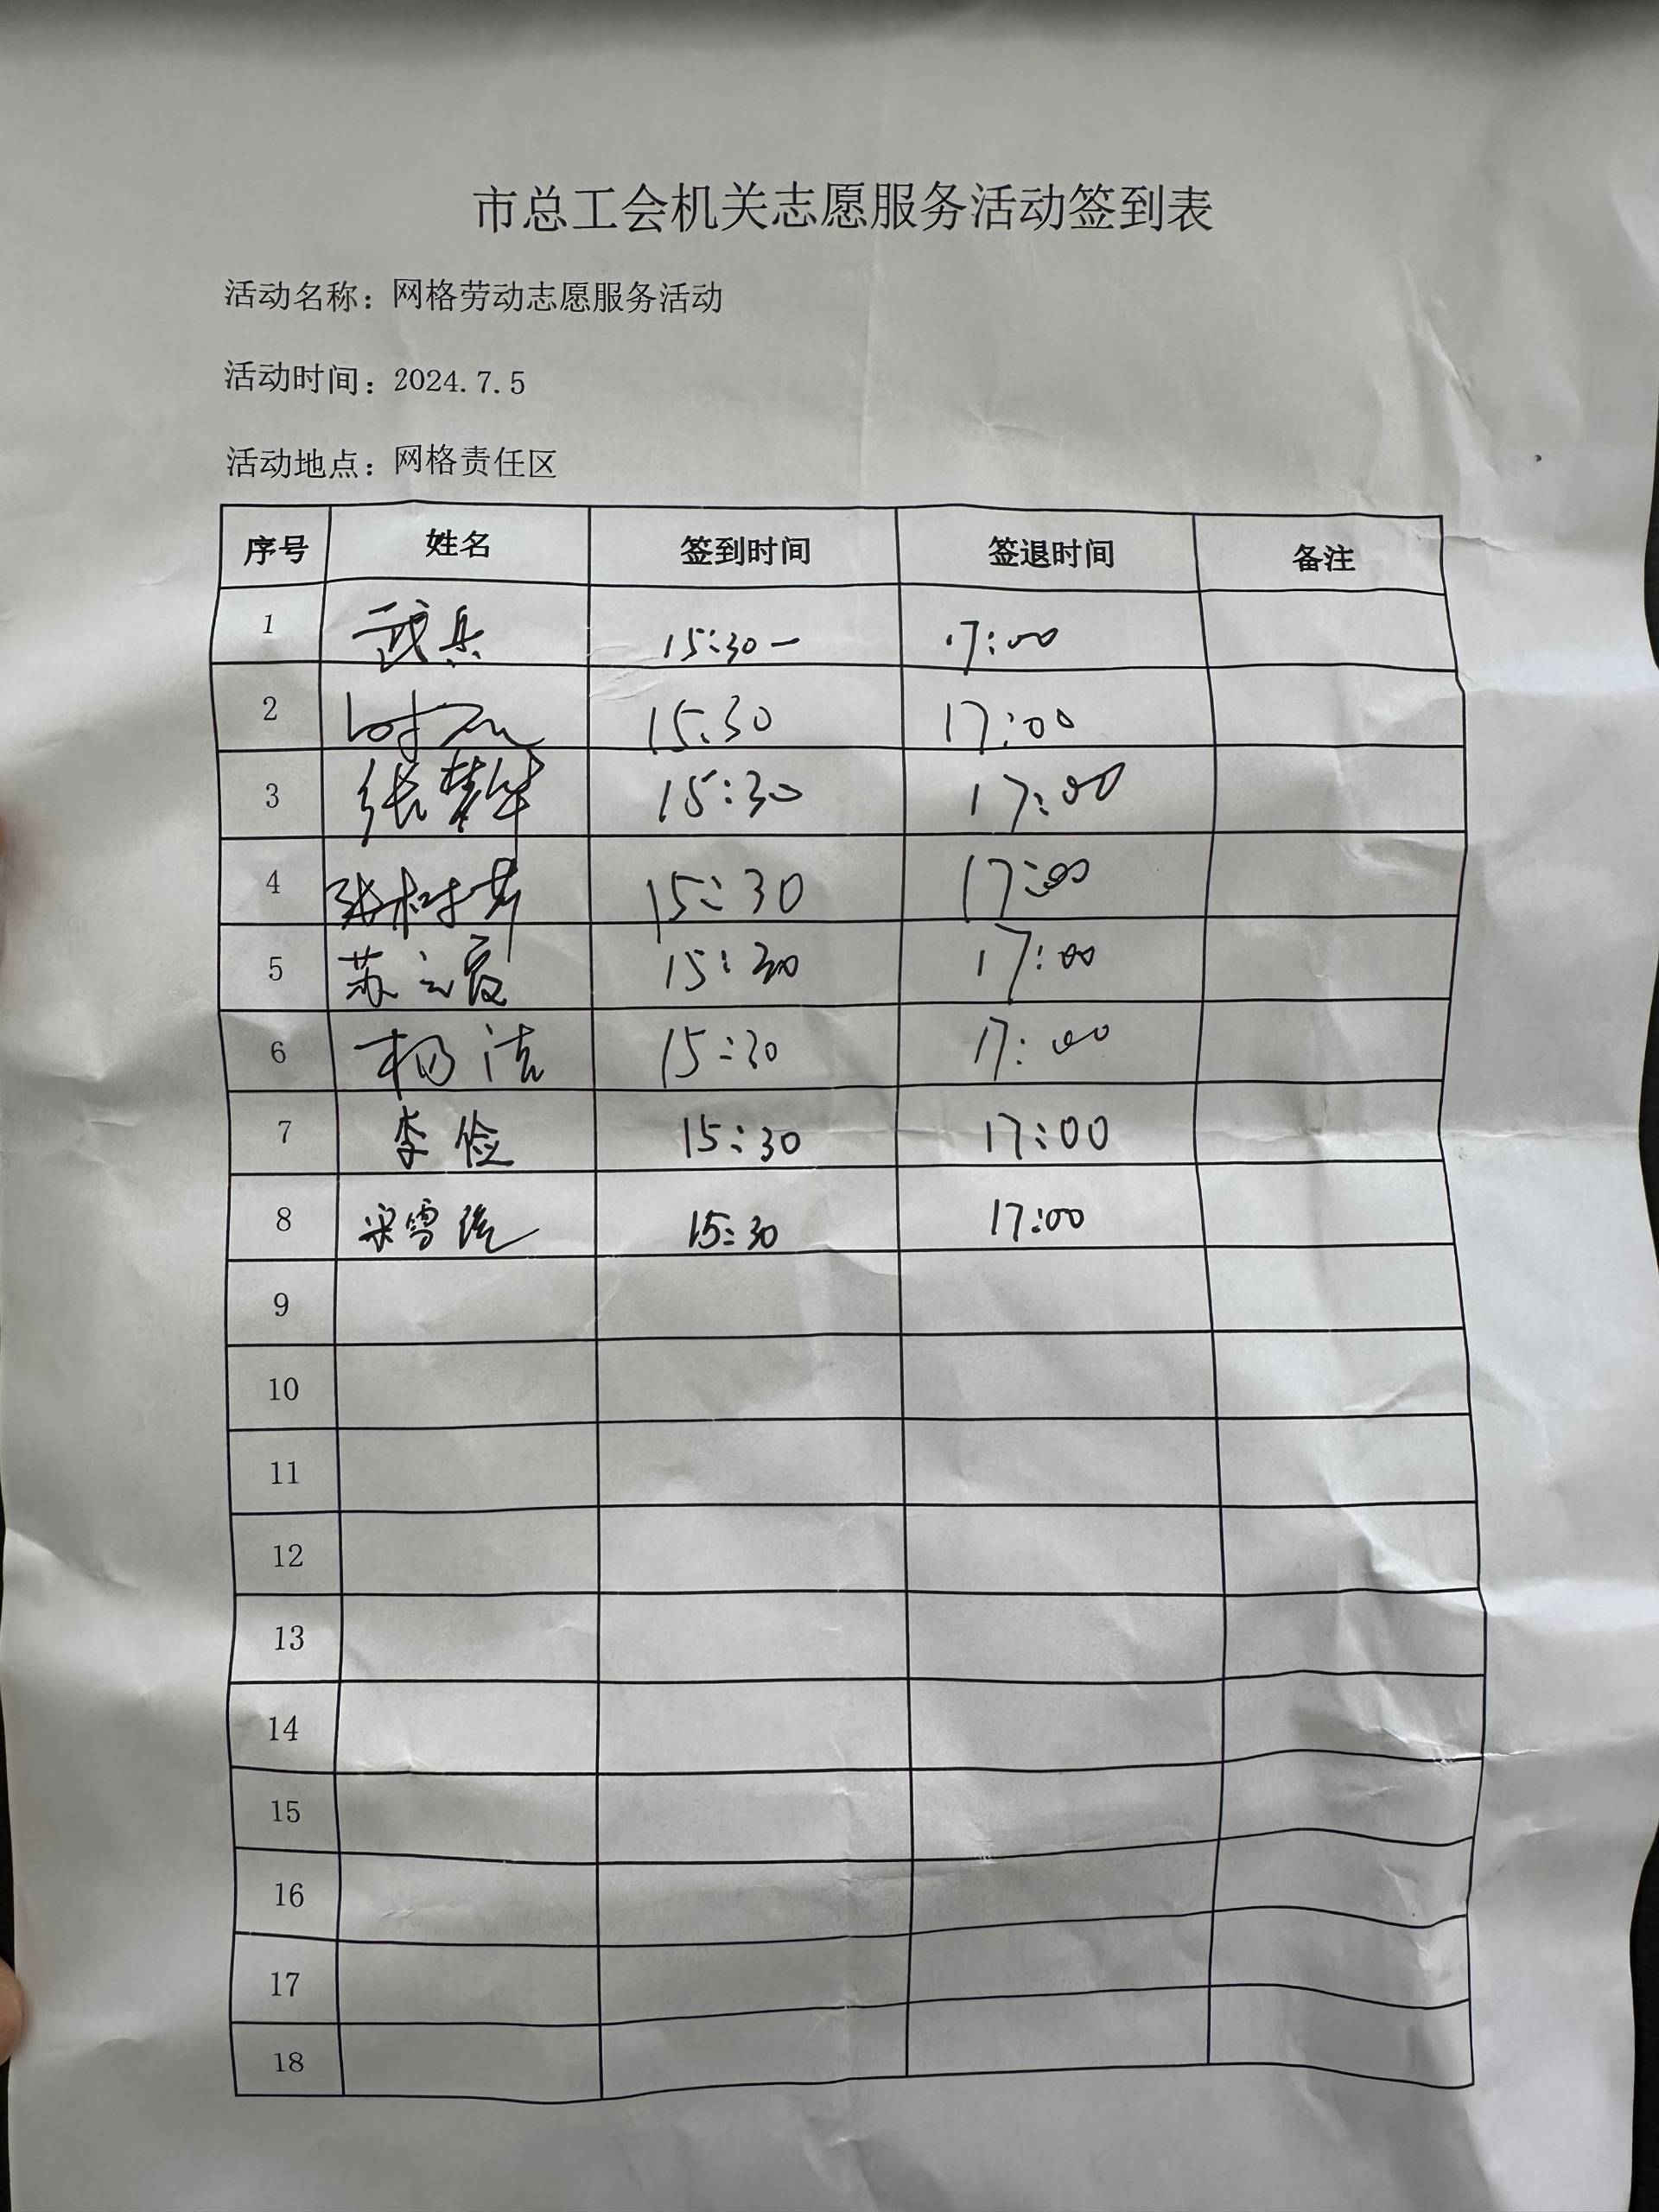 市总工会机关志愿服务活动签到表
活动名称：网格劳动志愿服务活动
活动时间：2024.7.5
活动地点：网格责任区
序号 姓名 签到时间 签退时间 备注
1 武兵 15:30一 17:00
2 15:30 17:00
3 张梦华 15:30 17:00
4 张树芳 15:30 17:00
5 苏云霞 15:30 17:00
6 杨洁 15:30 17:00
7 李俭 15:30 17:00
8 宋雪 15:30 17:00
9
10
11
12
13
14
15
16
17
18